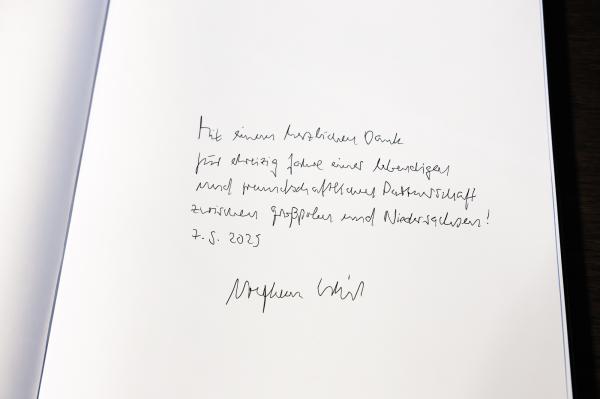 Mit einem herzlichen Dank
für dreizig Jahre einer lebendigen
und freundschaftlichen Partnerschaft
zwischen Großpolen und Niedersachsen!
7.5. 2025